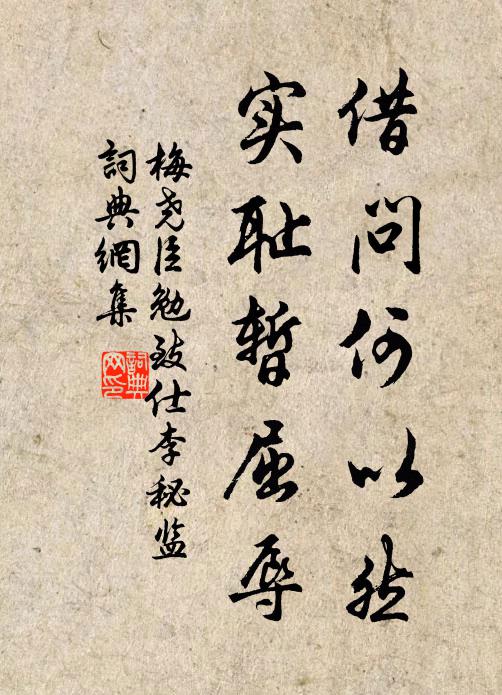 借问何以然
实耻暂屈辱
梅尧臣勉致仕李秘监
词典网集
词典网印